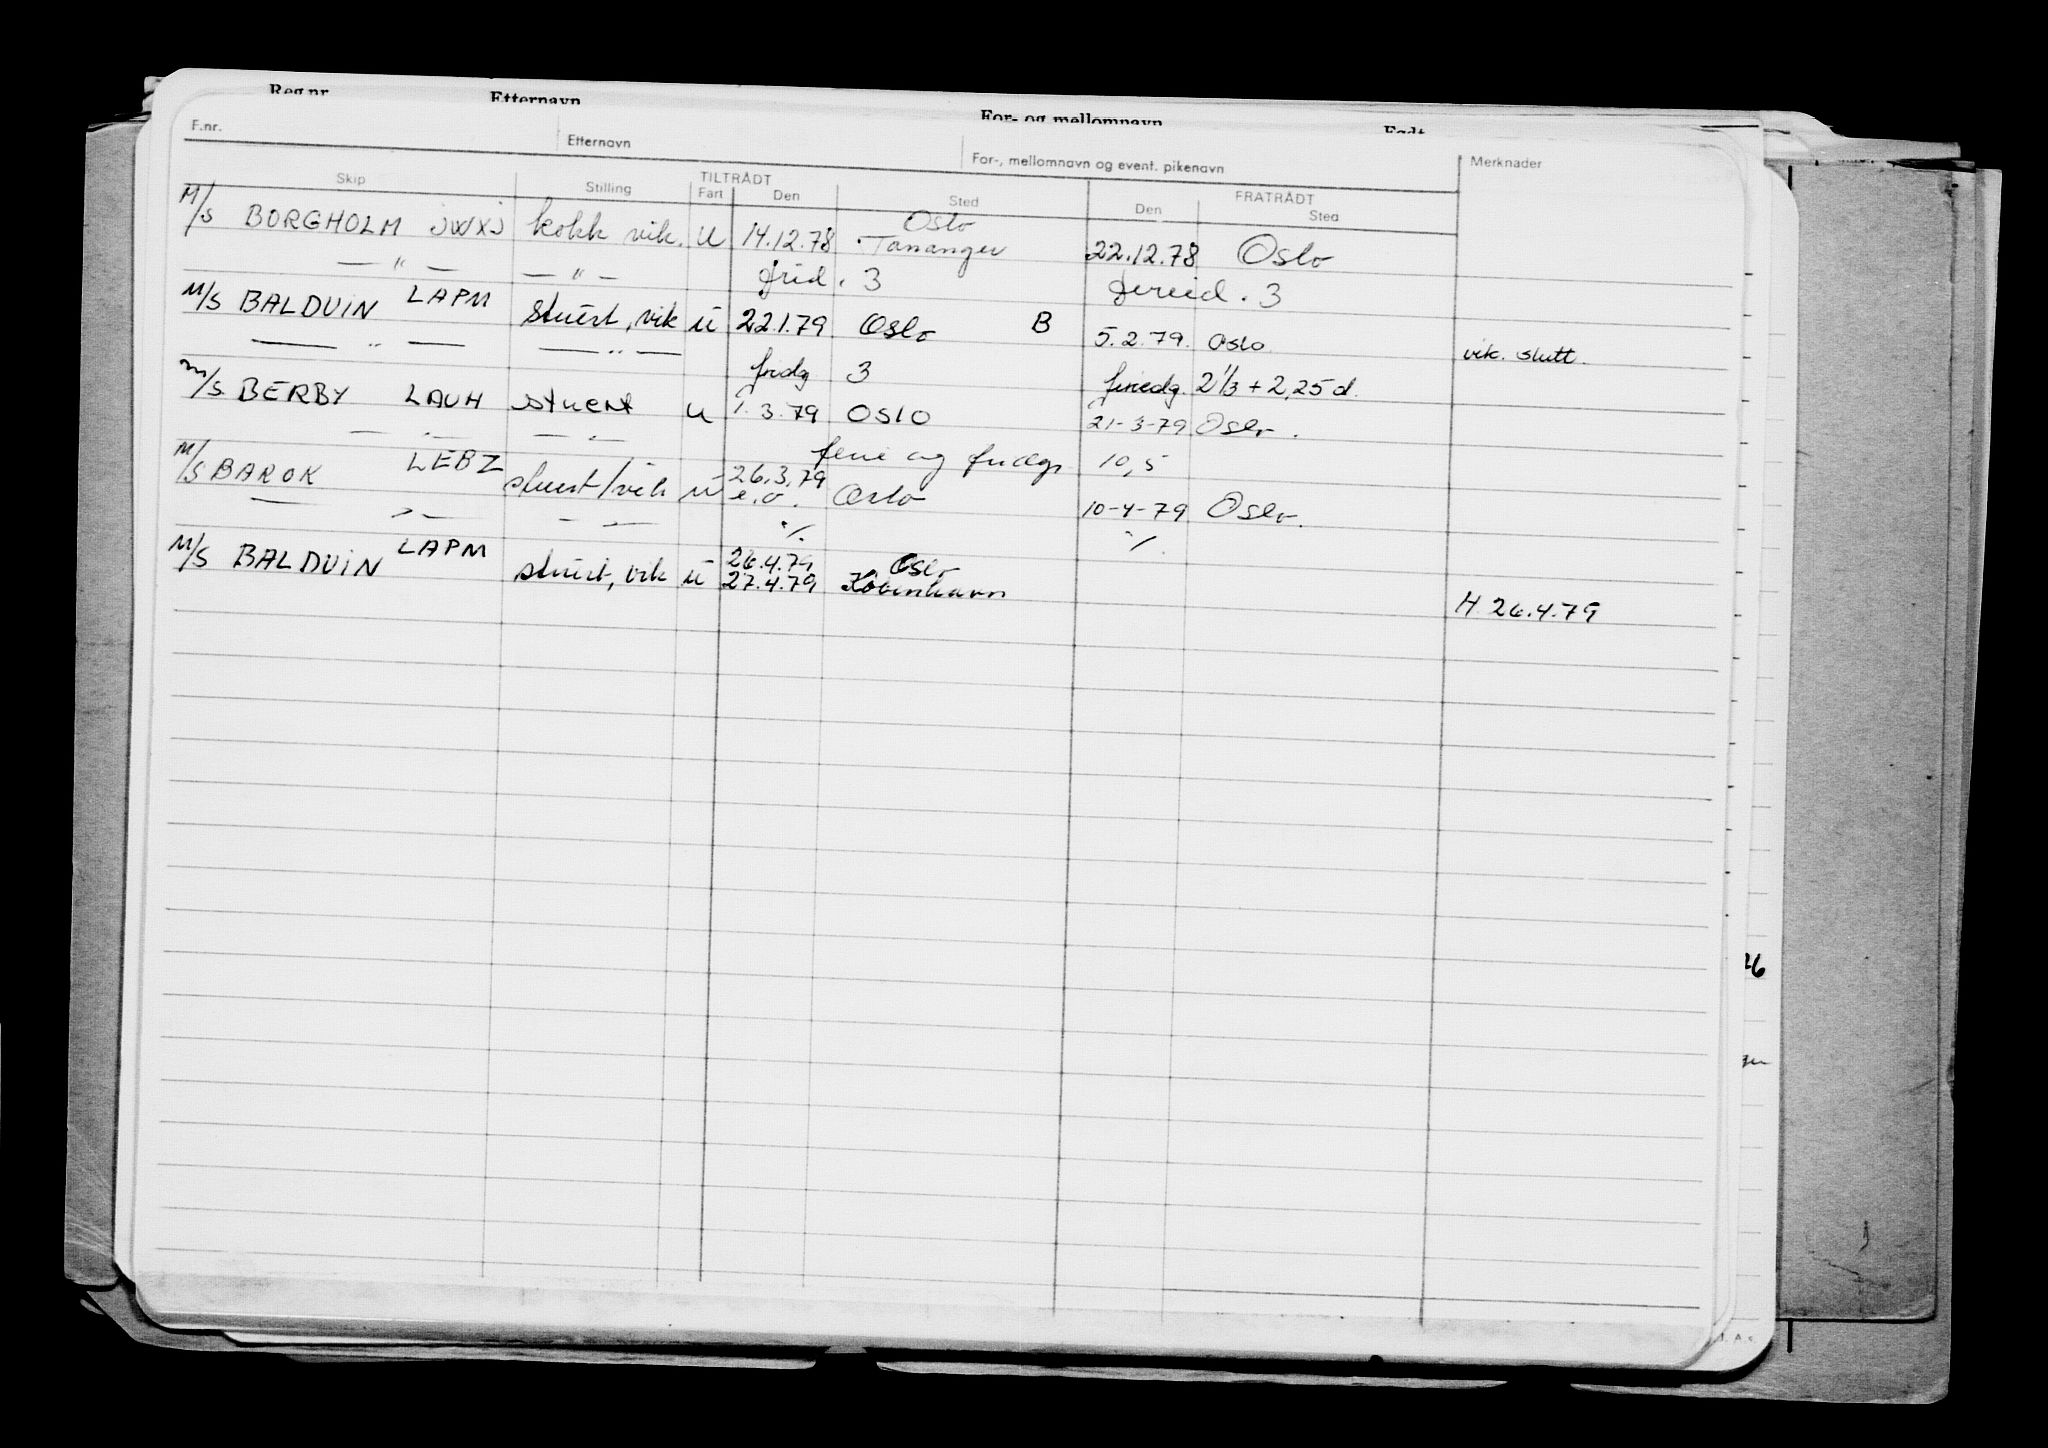 Reg.nr. Etternavn For- og mellomnavn Født
F.nr. Etternavn For-, mellomnavn og event. pikenavn Merknader
Skip Stilling TILTRÅDT Fart Den Sted FRATRÅDT Den Sted
Oslo
M/S BORGHOLM JWXJ kokk vik. U 14.12.78 Tananger 22.12.78 Oslo
— " — — " — frid. 3 feried. 3
M/S BALDUIN LAPM stuert, vik U 22.1.79 Oslo B 5.2.79. Oslo. vik. slutt.
— " — — " — fridg 3 feriedg. 2 1/3 + 2,25 d.
M/S BERBY LAUH stuert U 1.3.79 OSLO 21-3-79 Oslo.
— " — — " — ferie og fridgr 10,5
M/S BAROK LEBZ stuert/vik U 26.3.79 e.o. Oslo 10-4-79 Oslo.
— " — — " — % %
26.4.79 Oslo
M/S BALDUIN LAPM stuert, vik U 27.4.79 København H 26.4.79
26